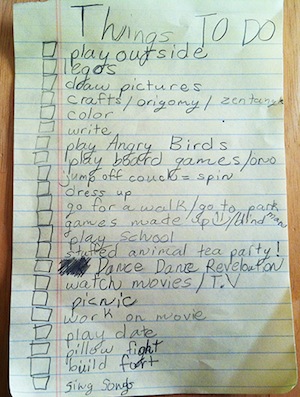 Things TO DO
play outside
legos
draw pictures
crafts / origomy / zentangle
color
write
play Angry Birds
play board games / uno
jump off couch = spin
dress up
go for a walk / go to park
games made up / blind man
play school
stuffed animal tea party!
Dance Dance Revelbution
watch movies / T.V
picnic
work on movie
play date
pillow fight
build fort
sing songs